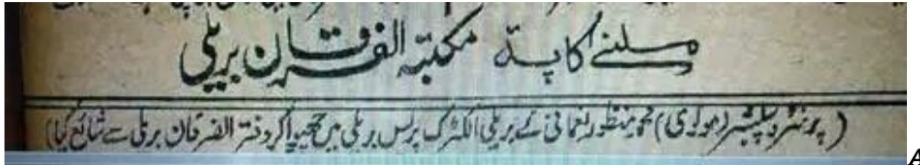 ملنے کا پتہ مکتبہ الفرقان بریلی
(پرنٹر و پبلشر (مولوی) محمد منظور نعمانی نے بریلی الکٹرک پریس بریلی میں چھپوا کر دفتر الفرقان بریلی سے شائع کیا)